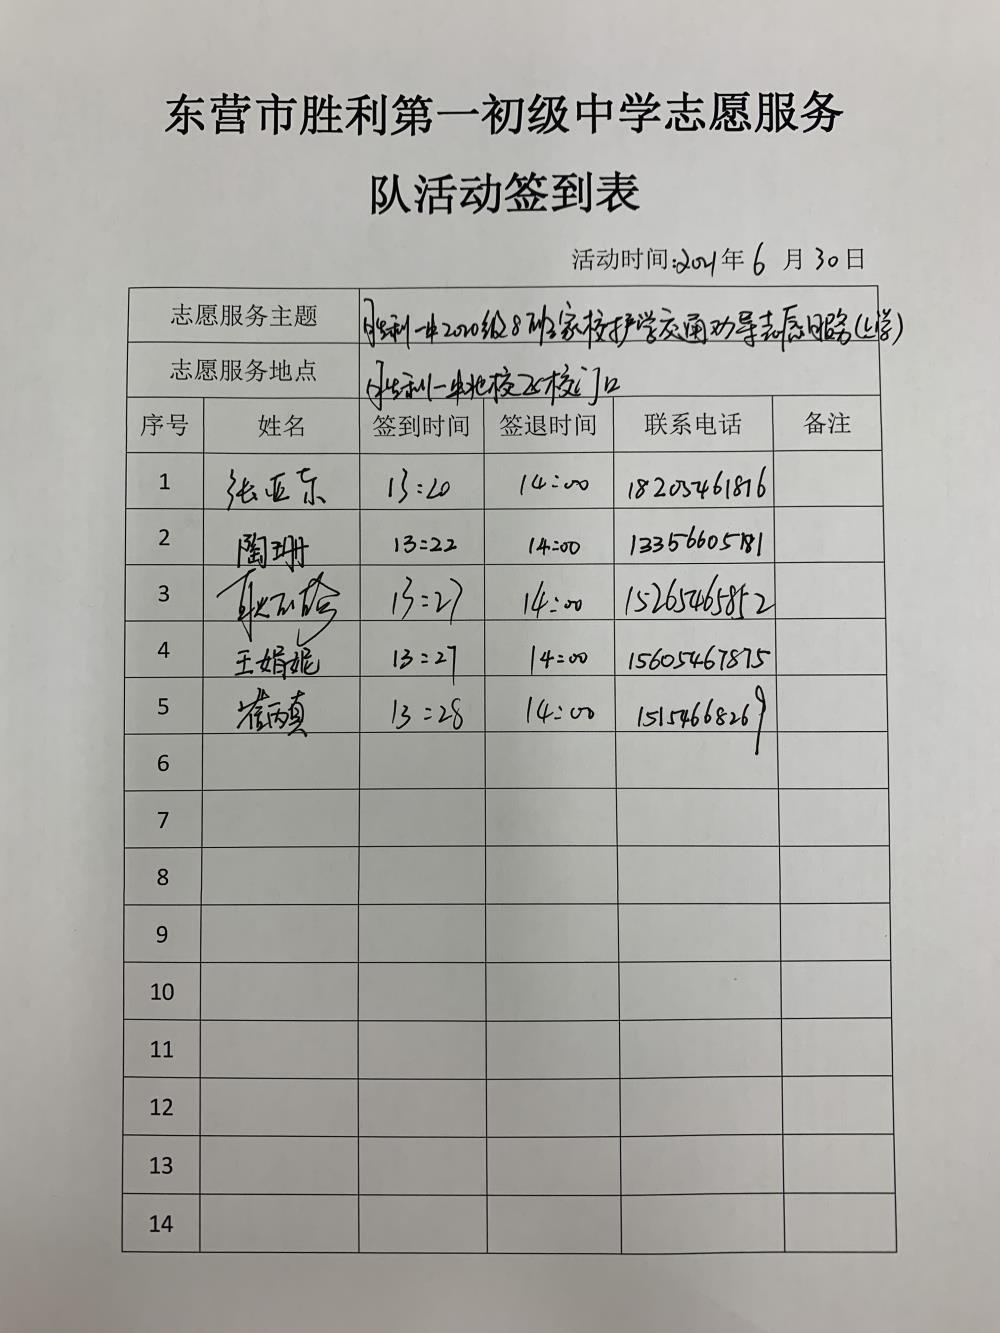 东营市胜利第一初级中学志愿服务
队活动签到表
活动时间:2021年6月30日
志愿服务主题 胜利一中2020级8班家校护学交通劝导志愿服务(上学)
志愿服务地点 胜利一中北校区校门口
序号 姓名 签到时间 签退时间 联系电话 备注
1 张亚东 13:20 14:00 18205461816
2 陶珊 13:22 14:00 13356605181
3 13:27 14:00 15265465852
4 王娟妮 13:27 14:00 15605467875
5 崔丙真 13:28 14:00 15154668269
6
7
8
9
10
11
12
13
14